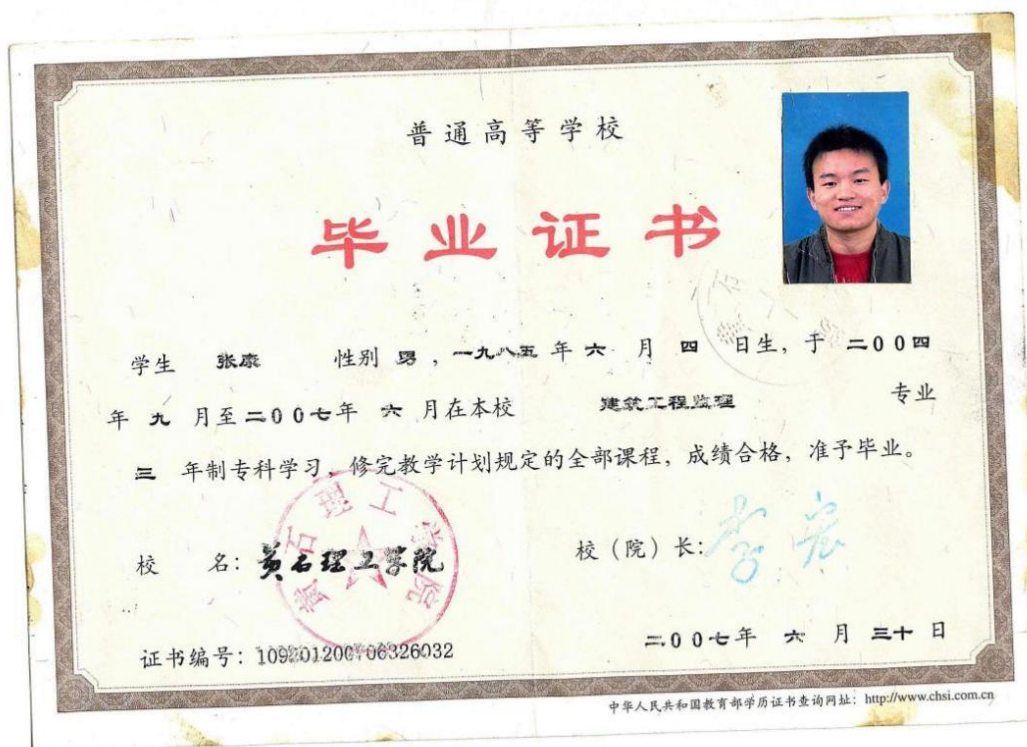 普通高等学校
毕业证书
学生 张康 性别 男，一九八五 年 六 月 四 日生，于 二00四
年 九 月至二00七年 六 月在本校 建筑工程监理 专业
三 年制专科学习、修完教学计划规定的全部课程，成绩合格，准予毕业。
黄石理工学院
校 名：黄石理工学院 校（院）长：李宏
二00七年 六 月 三十 日
证书编号：109201200706326032
中华人民共和国教育部学历证书查询网址：http://www.chsi.com.cn